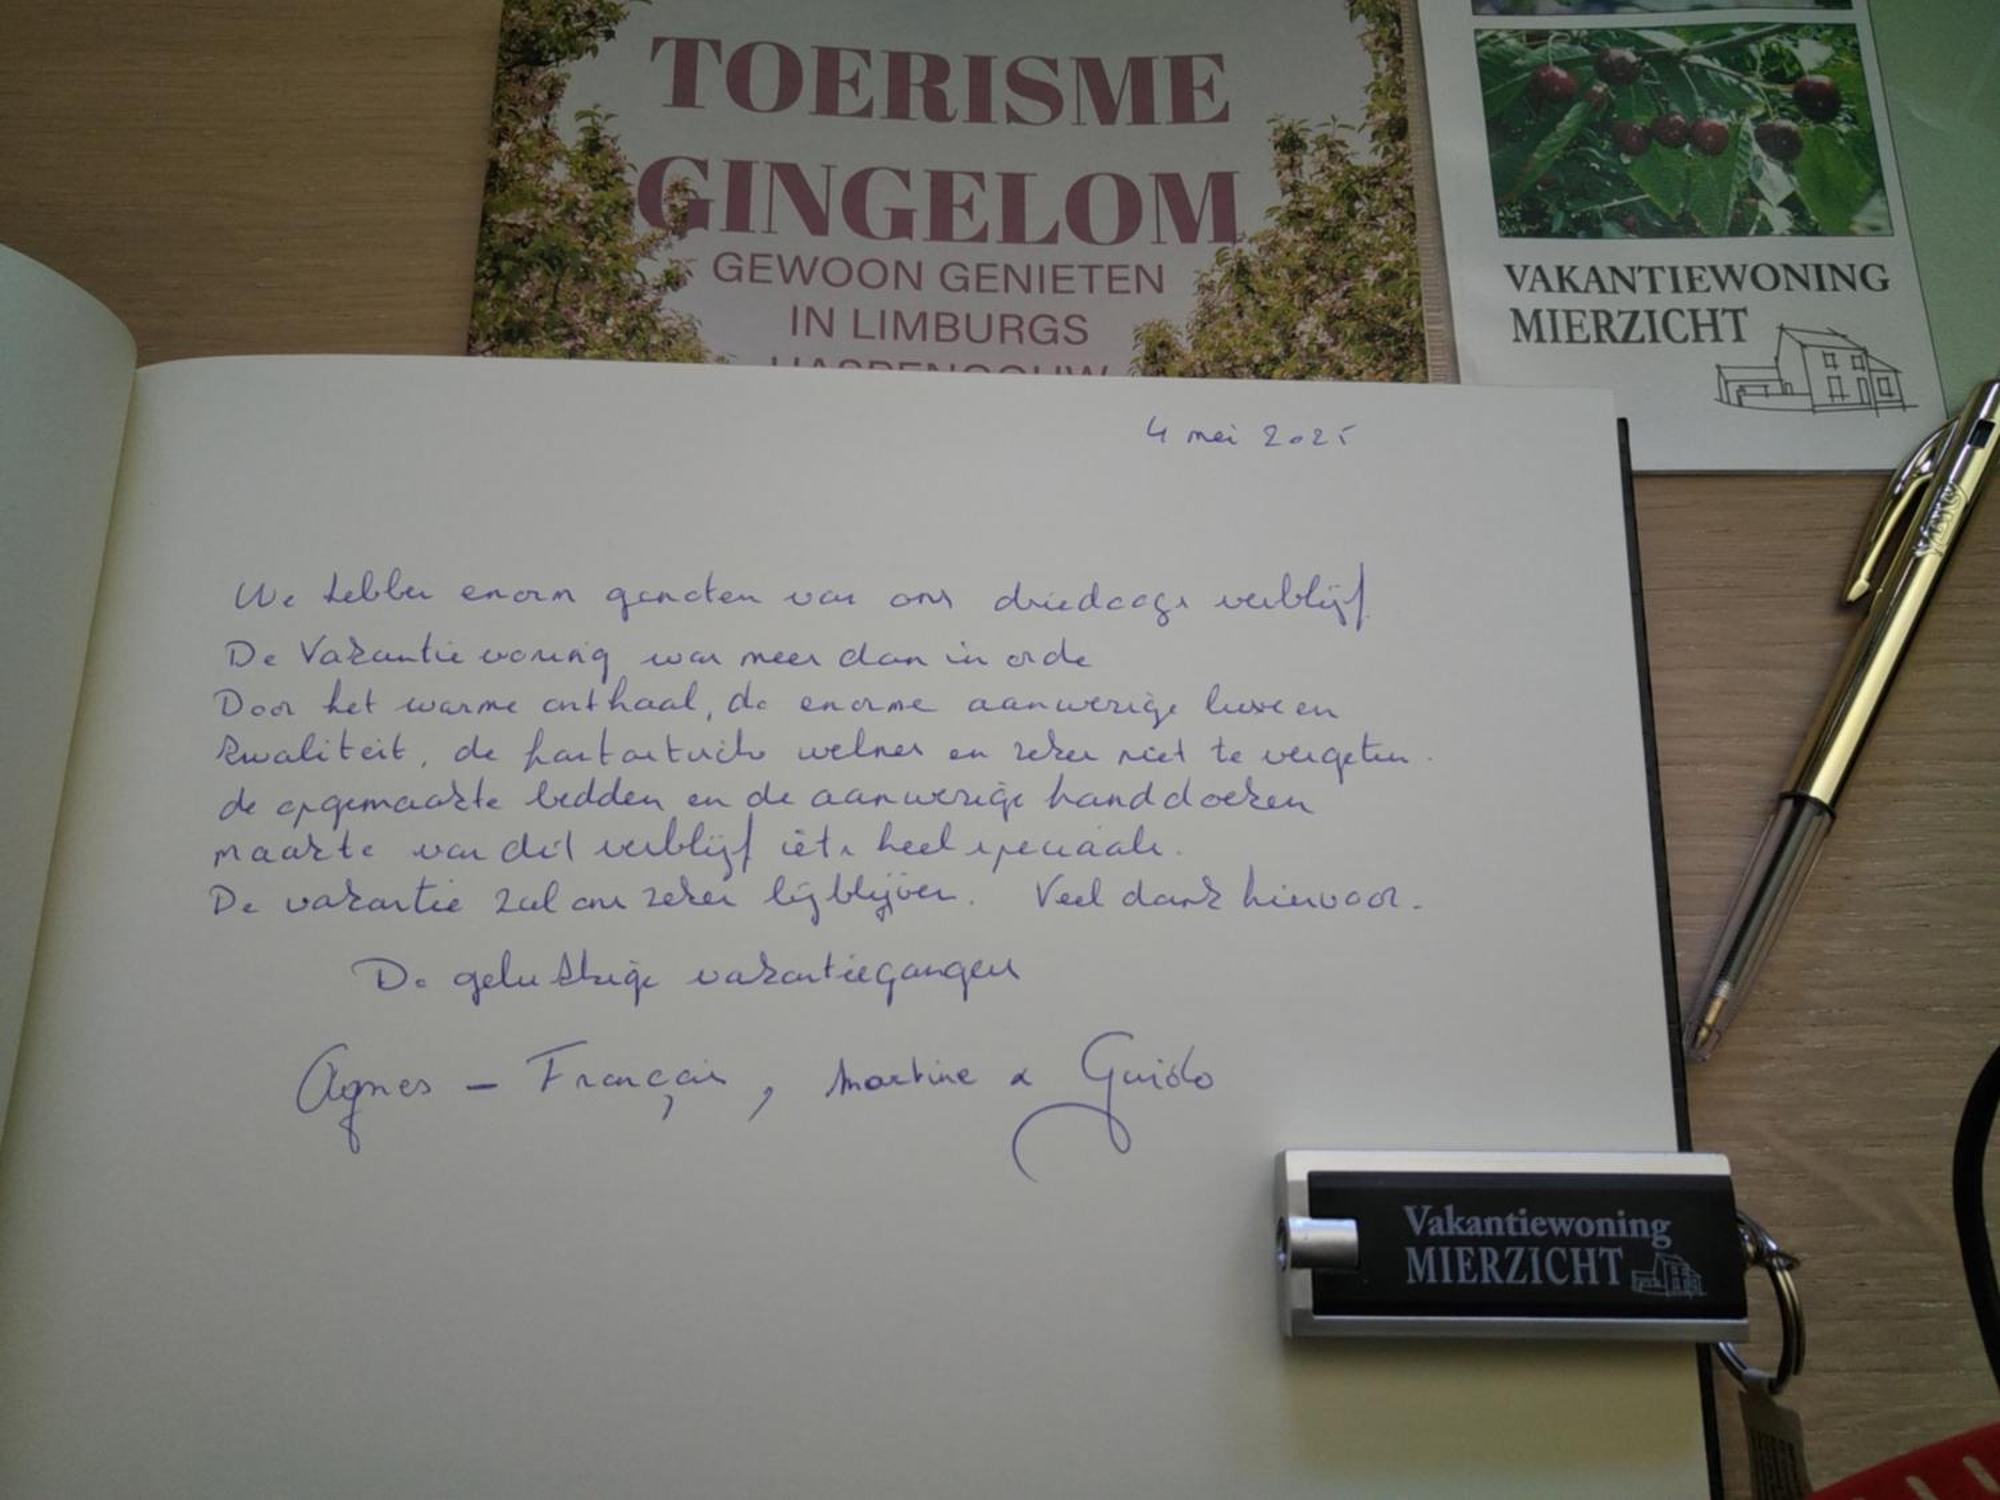 TOERISME
GINGELOM
GEWOON GENIETEN
IN LIMBURGS
HASPENGOUW
VAKANTIEWONING
MIERZICHT
4 mei 2025
We hebben enorm genoten van ons driedaags verblijf.
De Vakantiewoning was meer dan in orde
Door het warme onthaal, de enorme aanwezige luxe en
kwaliteit, de fantastische welnes en zeker niet te vergeten.
de opgemaakte bedden en de aanwezige handdoeken
maakte van dit verblijf iets heel speciaals.
De vakantie zal ons zeker bijblijven. Veel dank hiervoor.
De gelukkige vakantiegangers
Agnes – François, Martine & Guido
Vakantiewoning
MIERZICHT